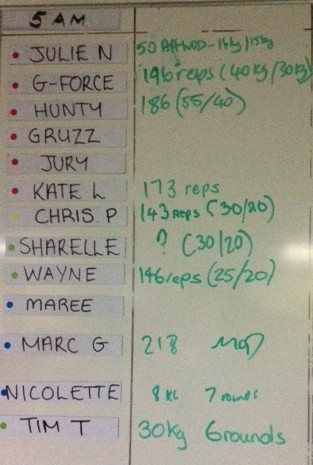 5 AM
JULIE N 50
G-FORCE 196 reps (40kg/30kg)
HUNTY 186 (55/40)
GRUZZ
JURY
KATE L 173 reps
CHRIS.P 143 reps (30/20)
SHARELLE ? (30/20)
WAYNE 146 reps (25/20)
MAREE
MARC G 218
NICOLETTE 8KG 7 rounds
TIM T 30kg 6rounds